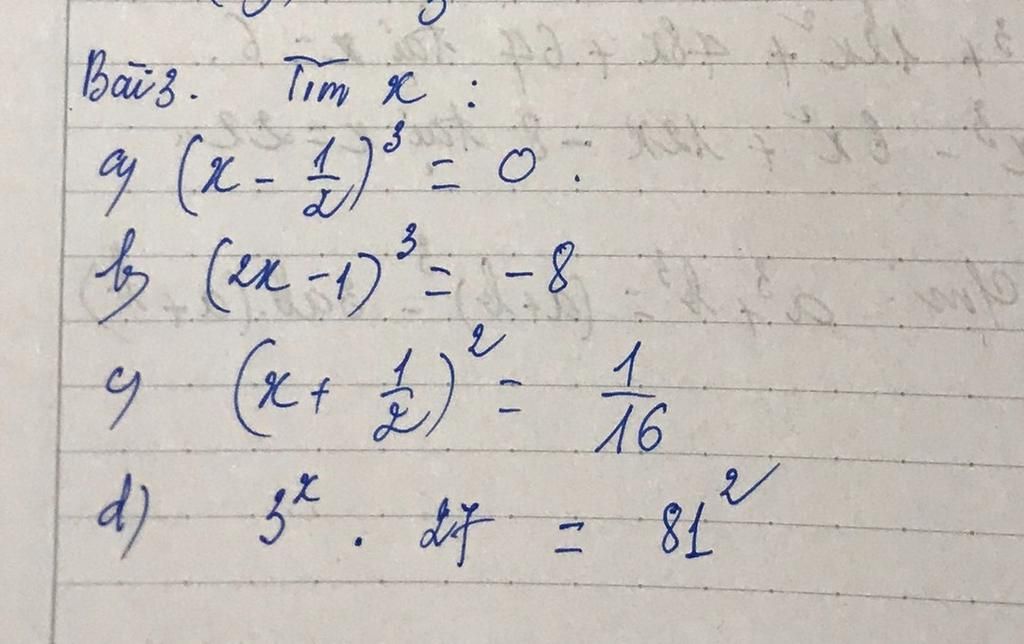 Bài 3. Tìm x :
a) (x - 1/2)³ = 0 .
b) (2x - 1)³ = -8
c) (x + 1/2)² = 1/16
d) 3ˣ . 27 = 81²